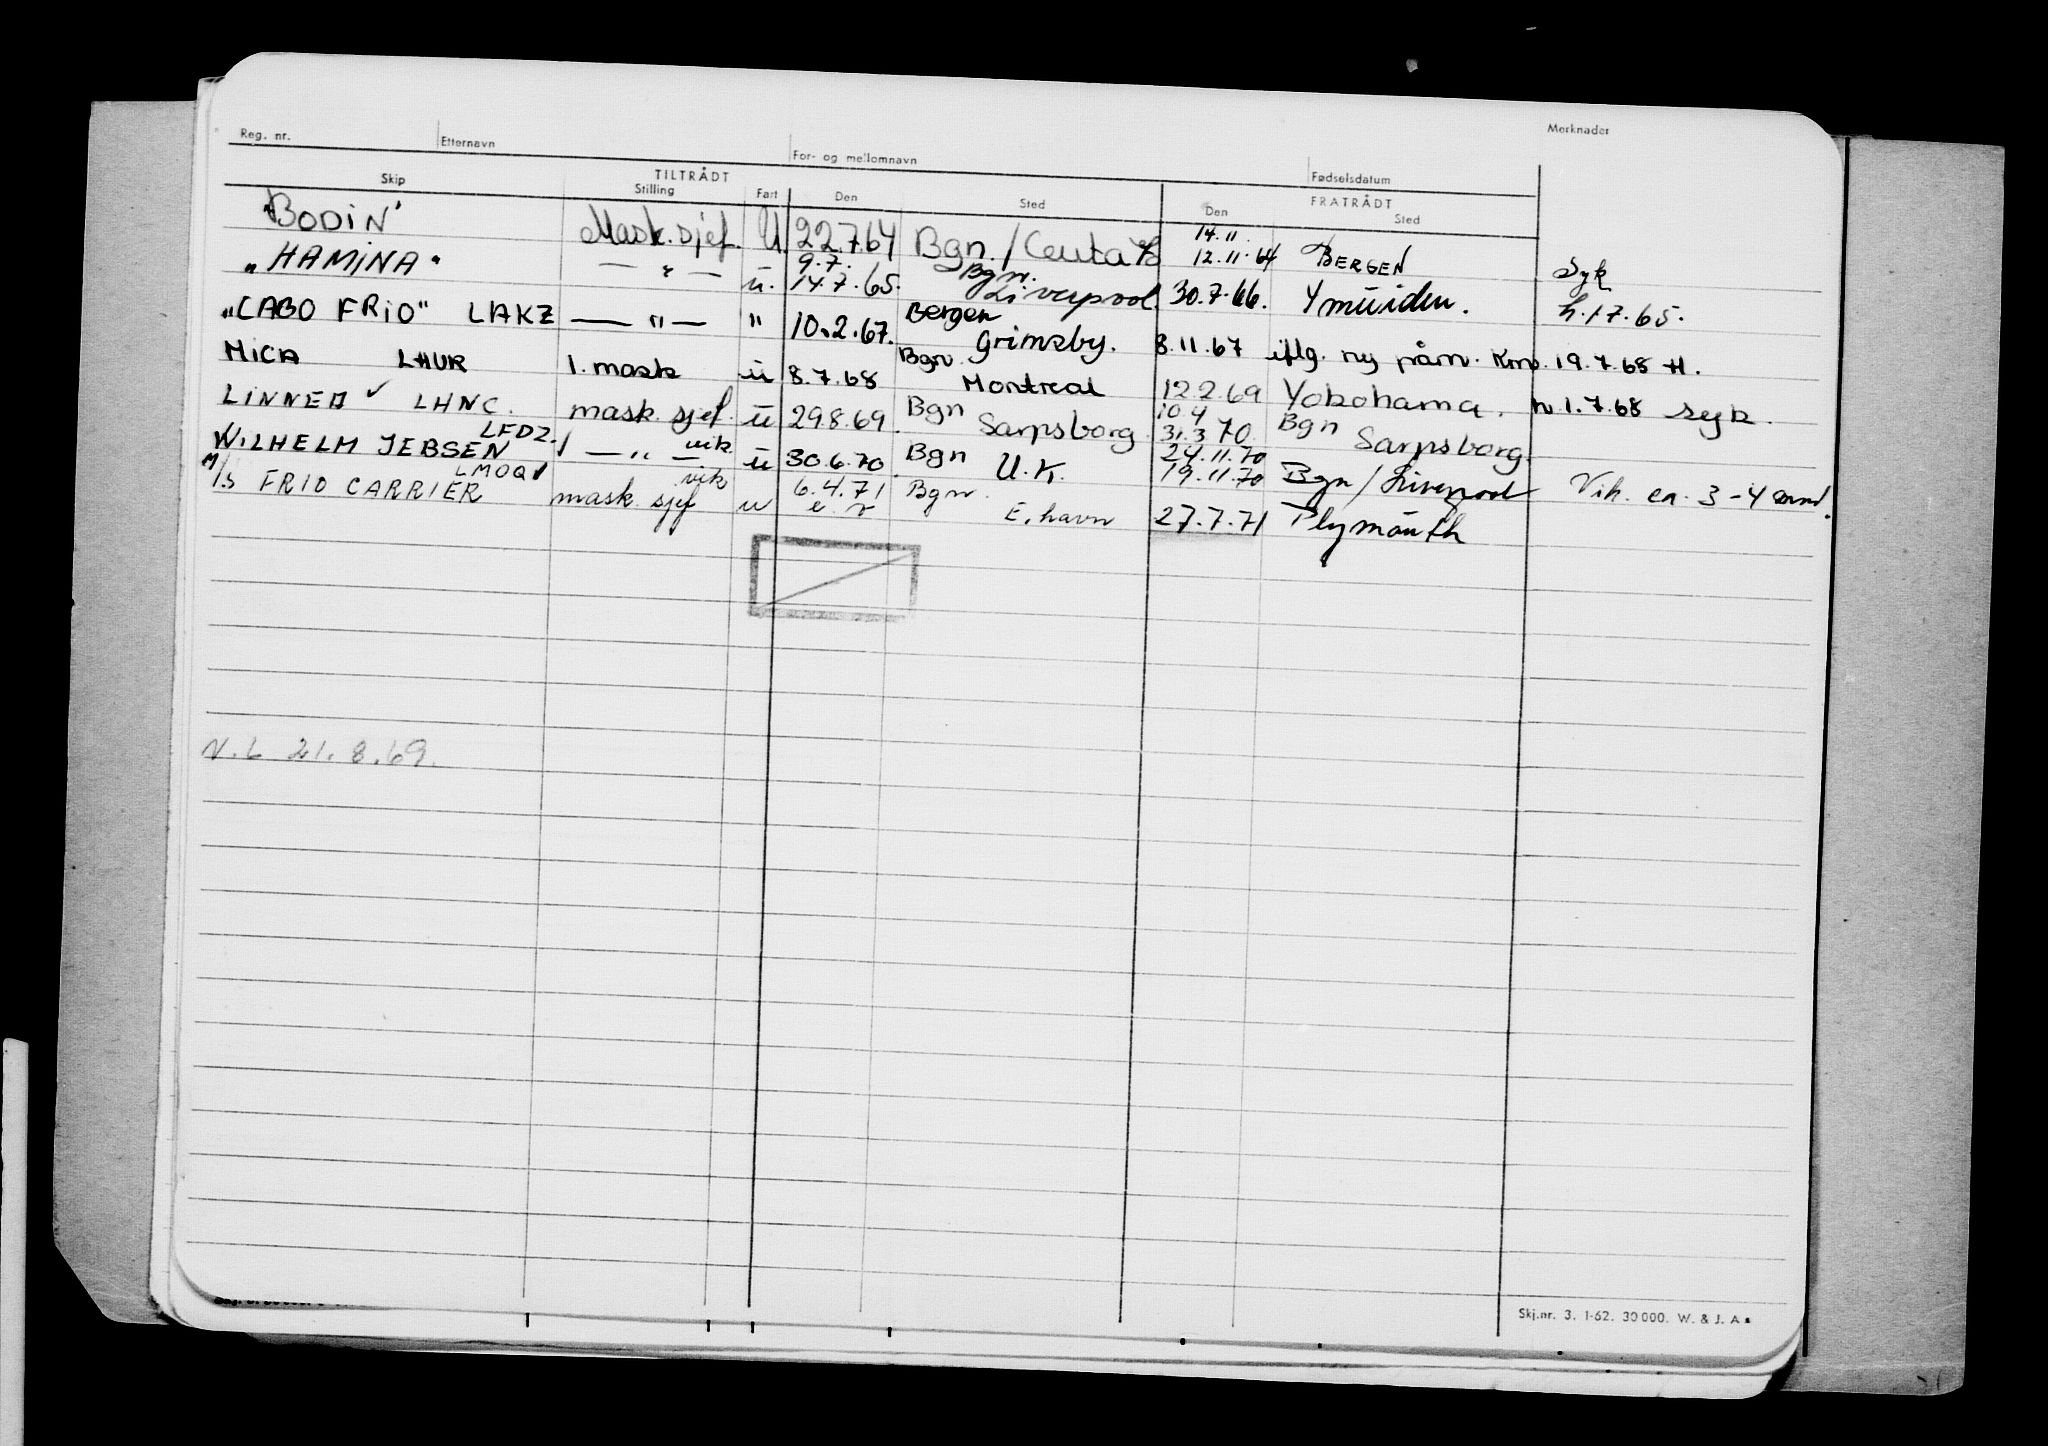 Reg. nr. Etternavn For- og mellomnavn Fødselsdatum Merknader
TILTRÅDT FRATRÅDT
Skip Stilling Fart Den Sted Den Sted
"BODIN" Mask.sjef. U 22.7.64 Bgn./Ceuta 14.11. 12.11.64 BERGEN Syk
"HAMINA" — " — u. 9.7. 14.7.65. Bgn. Liverpool 30.7.66. Ymuiden. h.17.65.
"CABO FRIO" LAKZ — " — " 10.2.67. Bergen Grimsby. 8.11.67 iflg. ny påm. Krm. 19.7.68 H.
MICA LHUR 1. mask u 8.7.68 Bgn. Montreal 12.2.69 Yokohama. h.1.7.68 syk.
LINNEA ✓ LHNC. mask. sjef. u 29.8.69. Bgn Sarpsborg 10.4 31.3.70. Bgn Sarpsborg.
WILHELM JEBSEN LFDZ. — " — vik. u 30.6.70. Bgn U.K. 24.11.70 19.11.70 Bgn/Liverpool Vik. ca. 3-4 mnd.
M/S FRIO CARRIER LMOQ mask. sjef vik u 6.4.71 Bgn. E.havn 27.7.71 Plymouth
V.L 21.8.69.
Skj.nr. 3. 1-62. 30000. W. & J. A